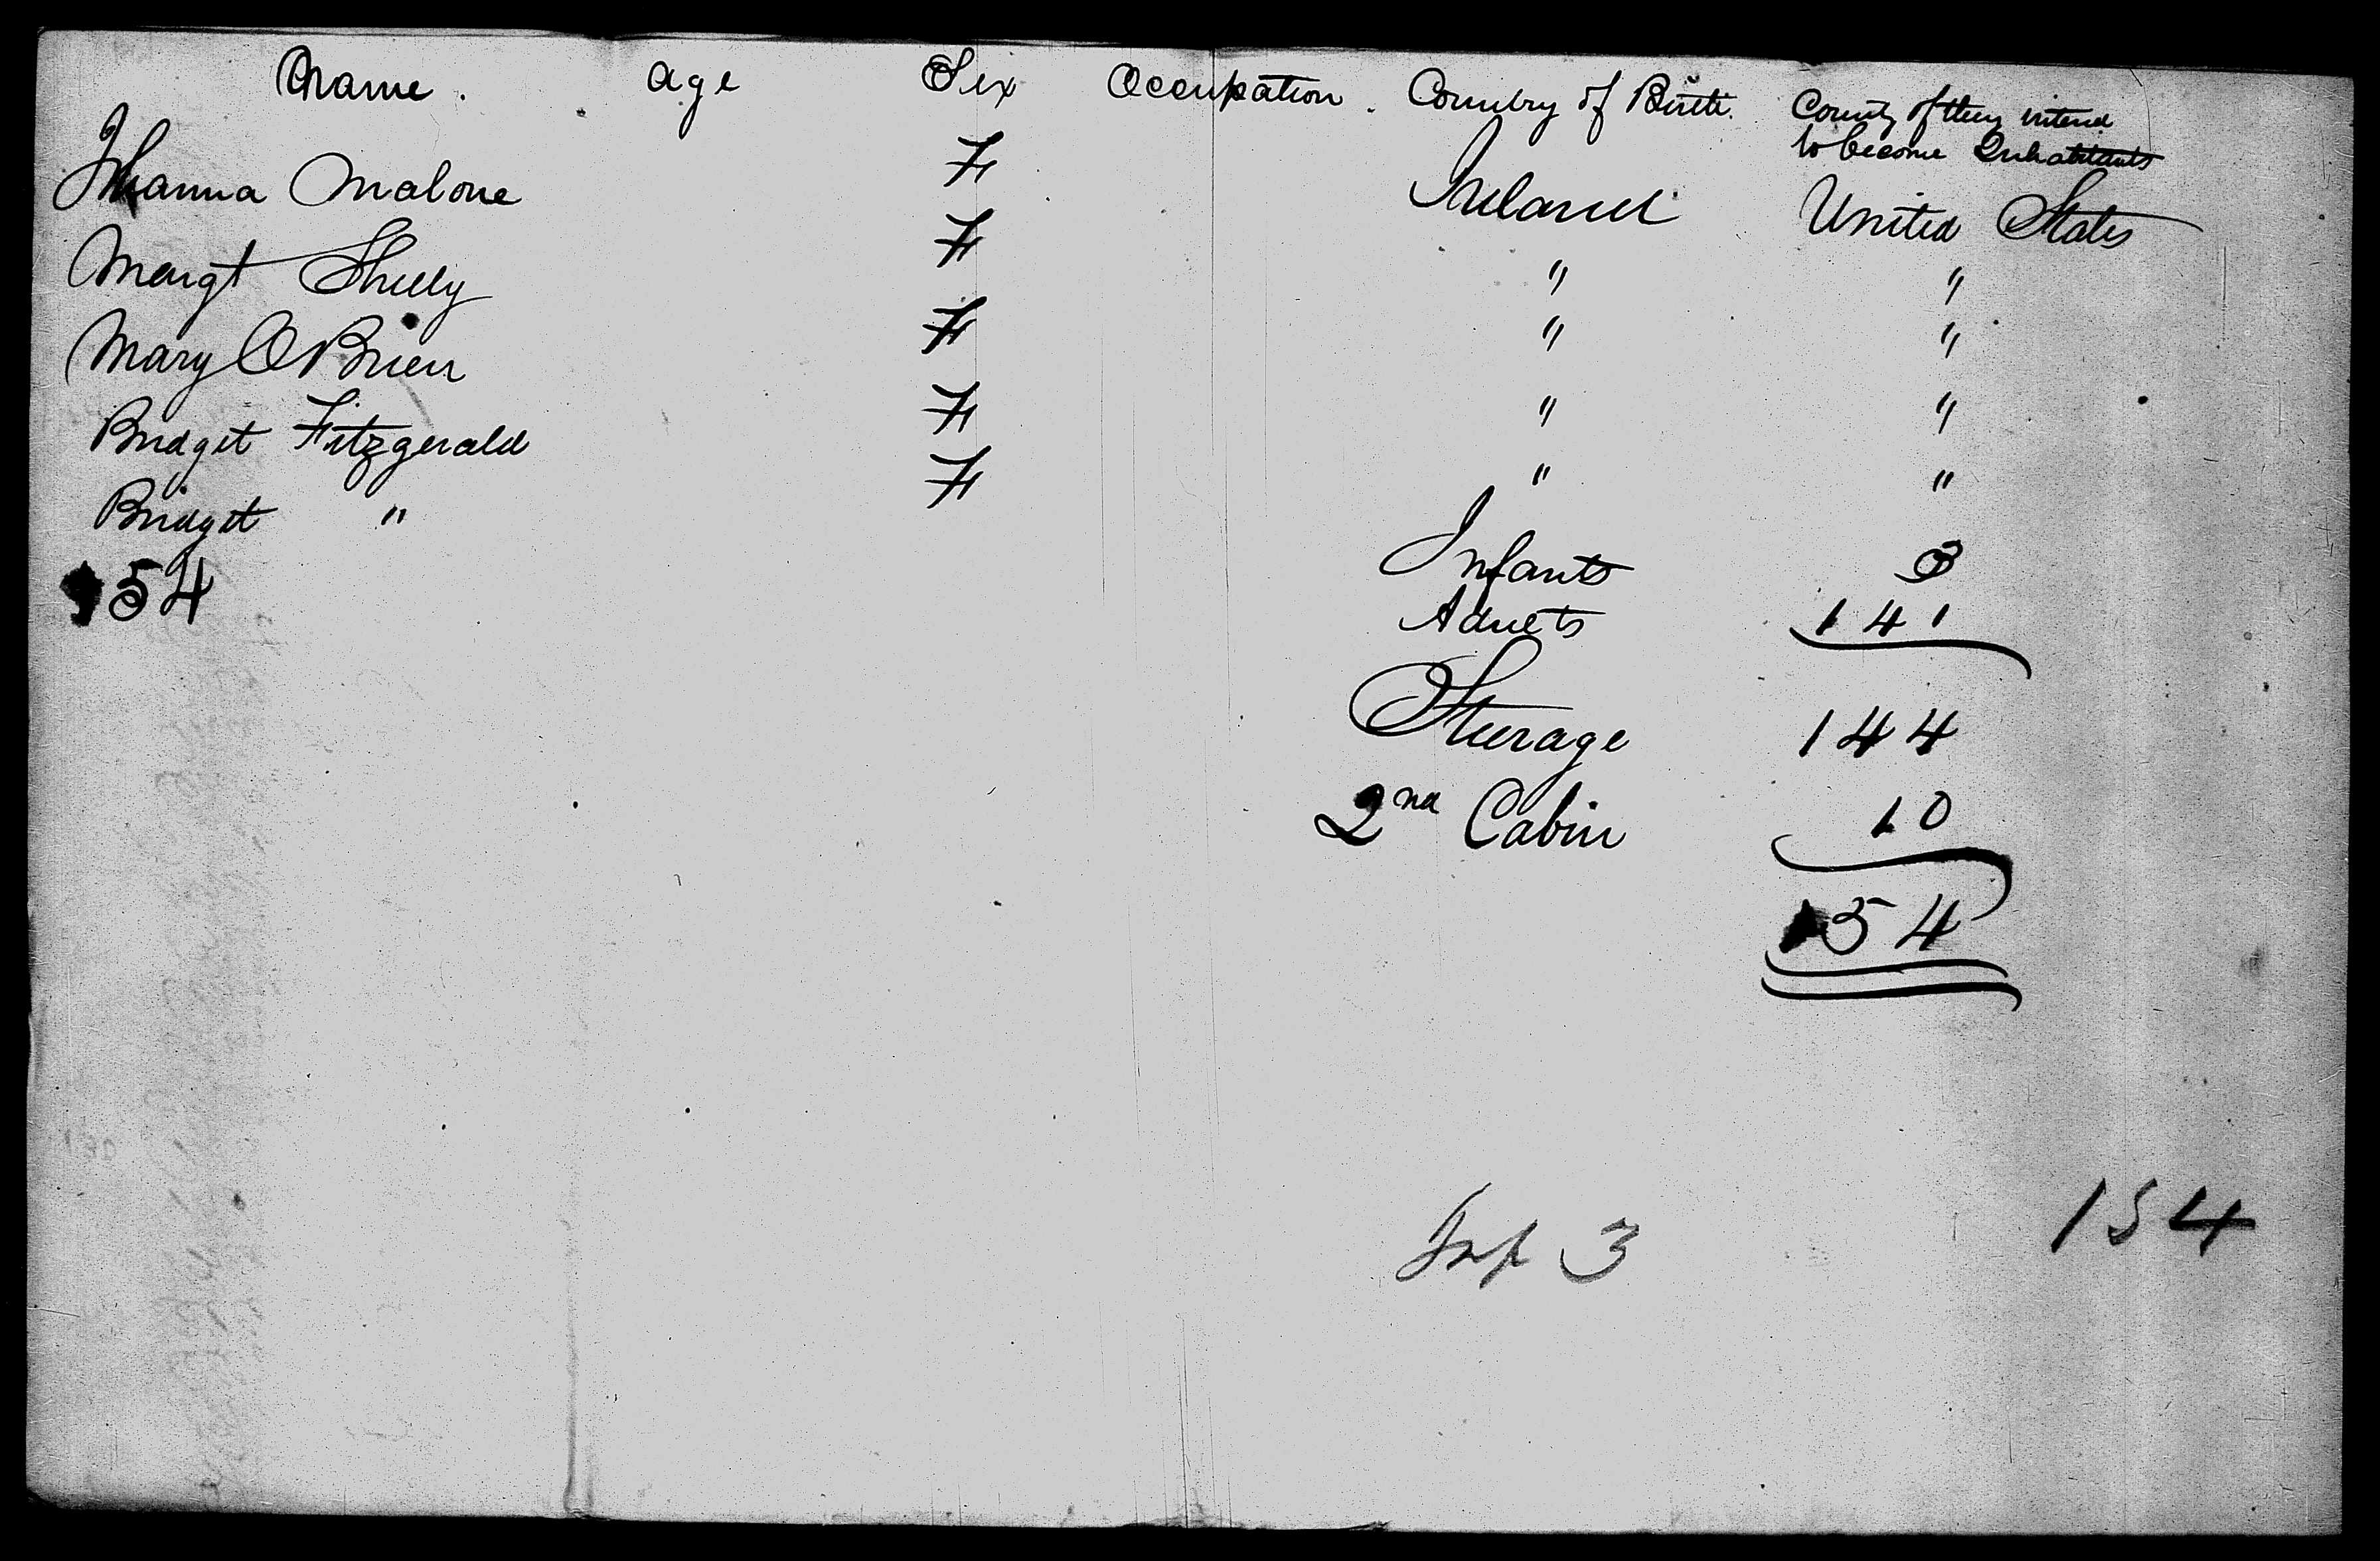 Name . Age Sex Occupation . Country of Birth. County of they intend to become Inhabitants
Johanna Malone F Ireland United States
Margt Shelly F " "
Mary OBrien F " "
Bridget Fitzgerald F " "
Bridget " F " "
154 Infants 3
Aduets 141
Steerage 144
2nd Cabin 10
154
154
Inf 3